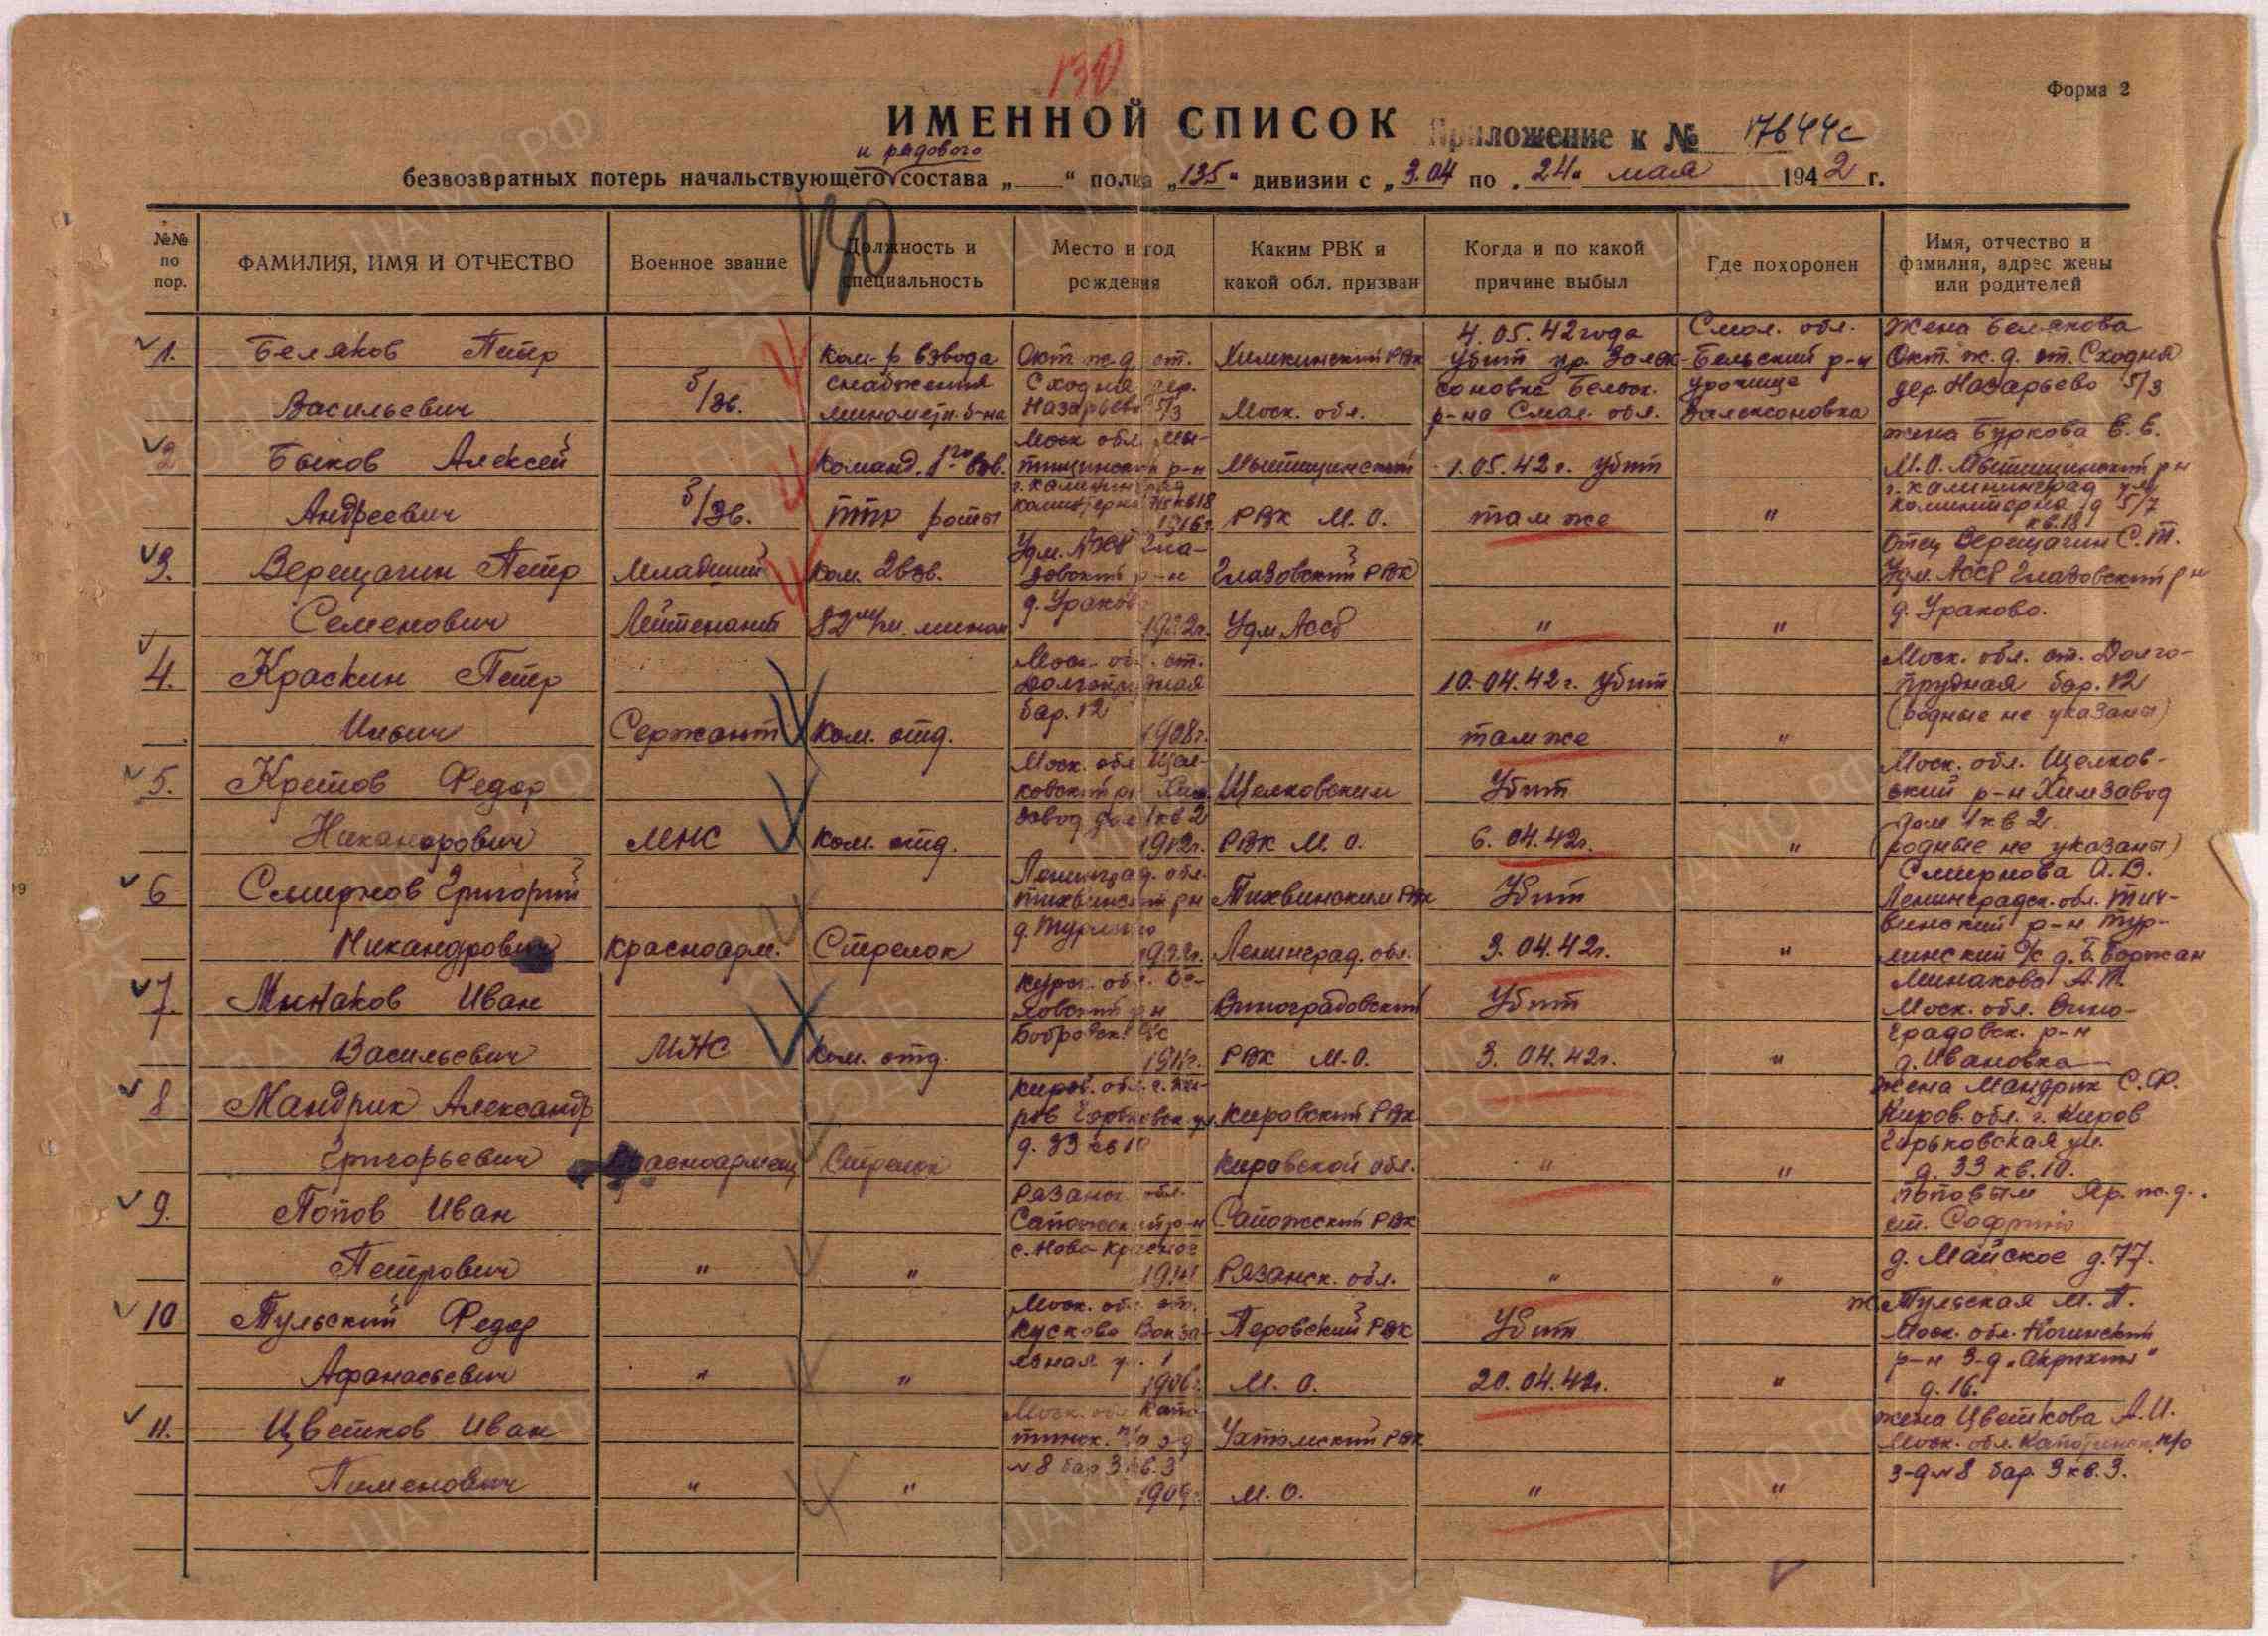 130
Форма 2
ИМЕННОЙ СПИСОК Приложение к № 17644с
и рядового
безвозвратных потерь начальствующего состава „ “ полка „135“ дивизии с „3.04 по „24“ мая 1942 г.
№№ по пор.
ФАМИЛИЯ, ИМЯ И ОТЧЕСТВО
Военное звание
Должность и специальность
Место и год рождения
Каким РВК и какой обл. призван
Когда и по какой причине выбыл
Где похоронен
Имя, отчество и фамилия, адрес жены или родителей
1. Беляков Петр Васильевич
б/зв.
Ком-р взвода снабжения миномётн. б-на
Окт. ж.д. ст. Сходня дер. Назарьево 5/3
Химкинский РВК Моск. обл.
4.05.42 года убит ур. Залексоновка Бельск. р-на Смол. обл.
Смол. обл. Бельский р-н урочище Залексоновка
Жена Белякова Окт. ж.д. ст. Сходня дер. Назарьево 5/3
2 Быков Алексей Андреевич
б/зв.
Команд. 1го взв. ПТР роты
Моск обл. Мытищинский р-н г. Калининград Коминтерна кв 18
Мытищинский РВК М.О.
1.05.42 г. убит там же
"
жена Буркова Е.Е. М.О. Мытищинский р-н г. Калининград ул Коминтерна д 5/7 кв.18
3. Верещагин Петр Семенович
Младший Лейтенант
Ком. 2 взв. 82 м/м. мином
Удм. АССР Глазовский р-н д. Ураково 1922г.
Глазовский РВК Удм АССР
"
"
Отец Верещагин С.Т. Удм. АССР Глазовский р-н д. Ураково.
4. Краскин Петр Ильич
Сержант
Ком. отд.
Моск. обл. ст. Долгопрудная бар. 12 1908г.
10.04.42 г. Убит там же
"
Моск. обл. ст. Долгопрудная бар. 12 (родные не указаны)
5. Кретов Федор Никанорович
МНС
Ком. отд.
Моск. обл. Щелковский р-н Химзавод дом 1 кв 2 1912г.
Щелковским РВК М.О.
Убит 6.04.42г.
"
Моск. обл. Щелковский р-н Химзавод дом 1 кв 2. (родные не указаны)
6 Смирнов Григорий Никандрович
Красноарм.
Стрелок
Ленинград. обл. Тихвинский р-н д. 1922г.
Тихвинским РВК Ленинград. обл.
Убит 3.04.42г.
"
Смирнова А.В. Ленинградск. обл. Тихвинский р-н Турлинский с/с д. Б. Боржан
7. Минаков Иван Васильевич
МНС
Ком. отд.
Курск. обл. р-н Бобровск. с/с
Виноградовский РВК М.О.
Убит 3.04.42г.
"
Минакова А.Т. Моск. обл. Виноградовск. р-н д. Ивановка
8 Мандрик Александр Григорьевич
Красноармеец
Стрелок
Киров. обл. г. Киров Горьковск ул. д. 33 кв 10
Кировский РВК Кировской обл.
"
"
жена Мандрик С.Ф. Киров. обл. г. Киров Горьковская ул. д. 33 кв. 10.
9. Попов Иван Петрович
"
"
Рязанск обл. Сапожск р-н с. Ново Красное
Сапожский РВК Рязанск. обл.
"
"
Поповым Яр. ж.д. ст. Софрино д. Майское д. 77.
10 Тульский Федор Афанасьевич
"
"
Моск. обл. ст. Кусково Вокзальная ул. 1 1906г.
Перовский РВК М.О.
Убит 20.04.42г.
"
ж. Тульская М.П. Моск. обл. Ногинский р-н з-д „Акрихин" д. 16.
11. Цветков Иван Пименович
"
"
Моск. обл. Капотинск. п/о з-д №8 бар 3 кв. 3 1909г
Ухтомский РВК М.О.
"
"
жена Цветкова А.И. Моск. обл. Капотинск. п/о з-д №8 бар. 3 кв. 3.